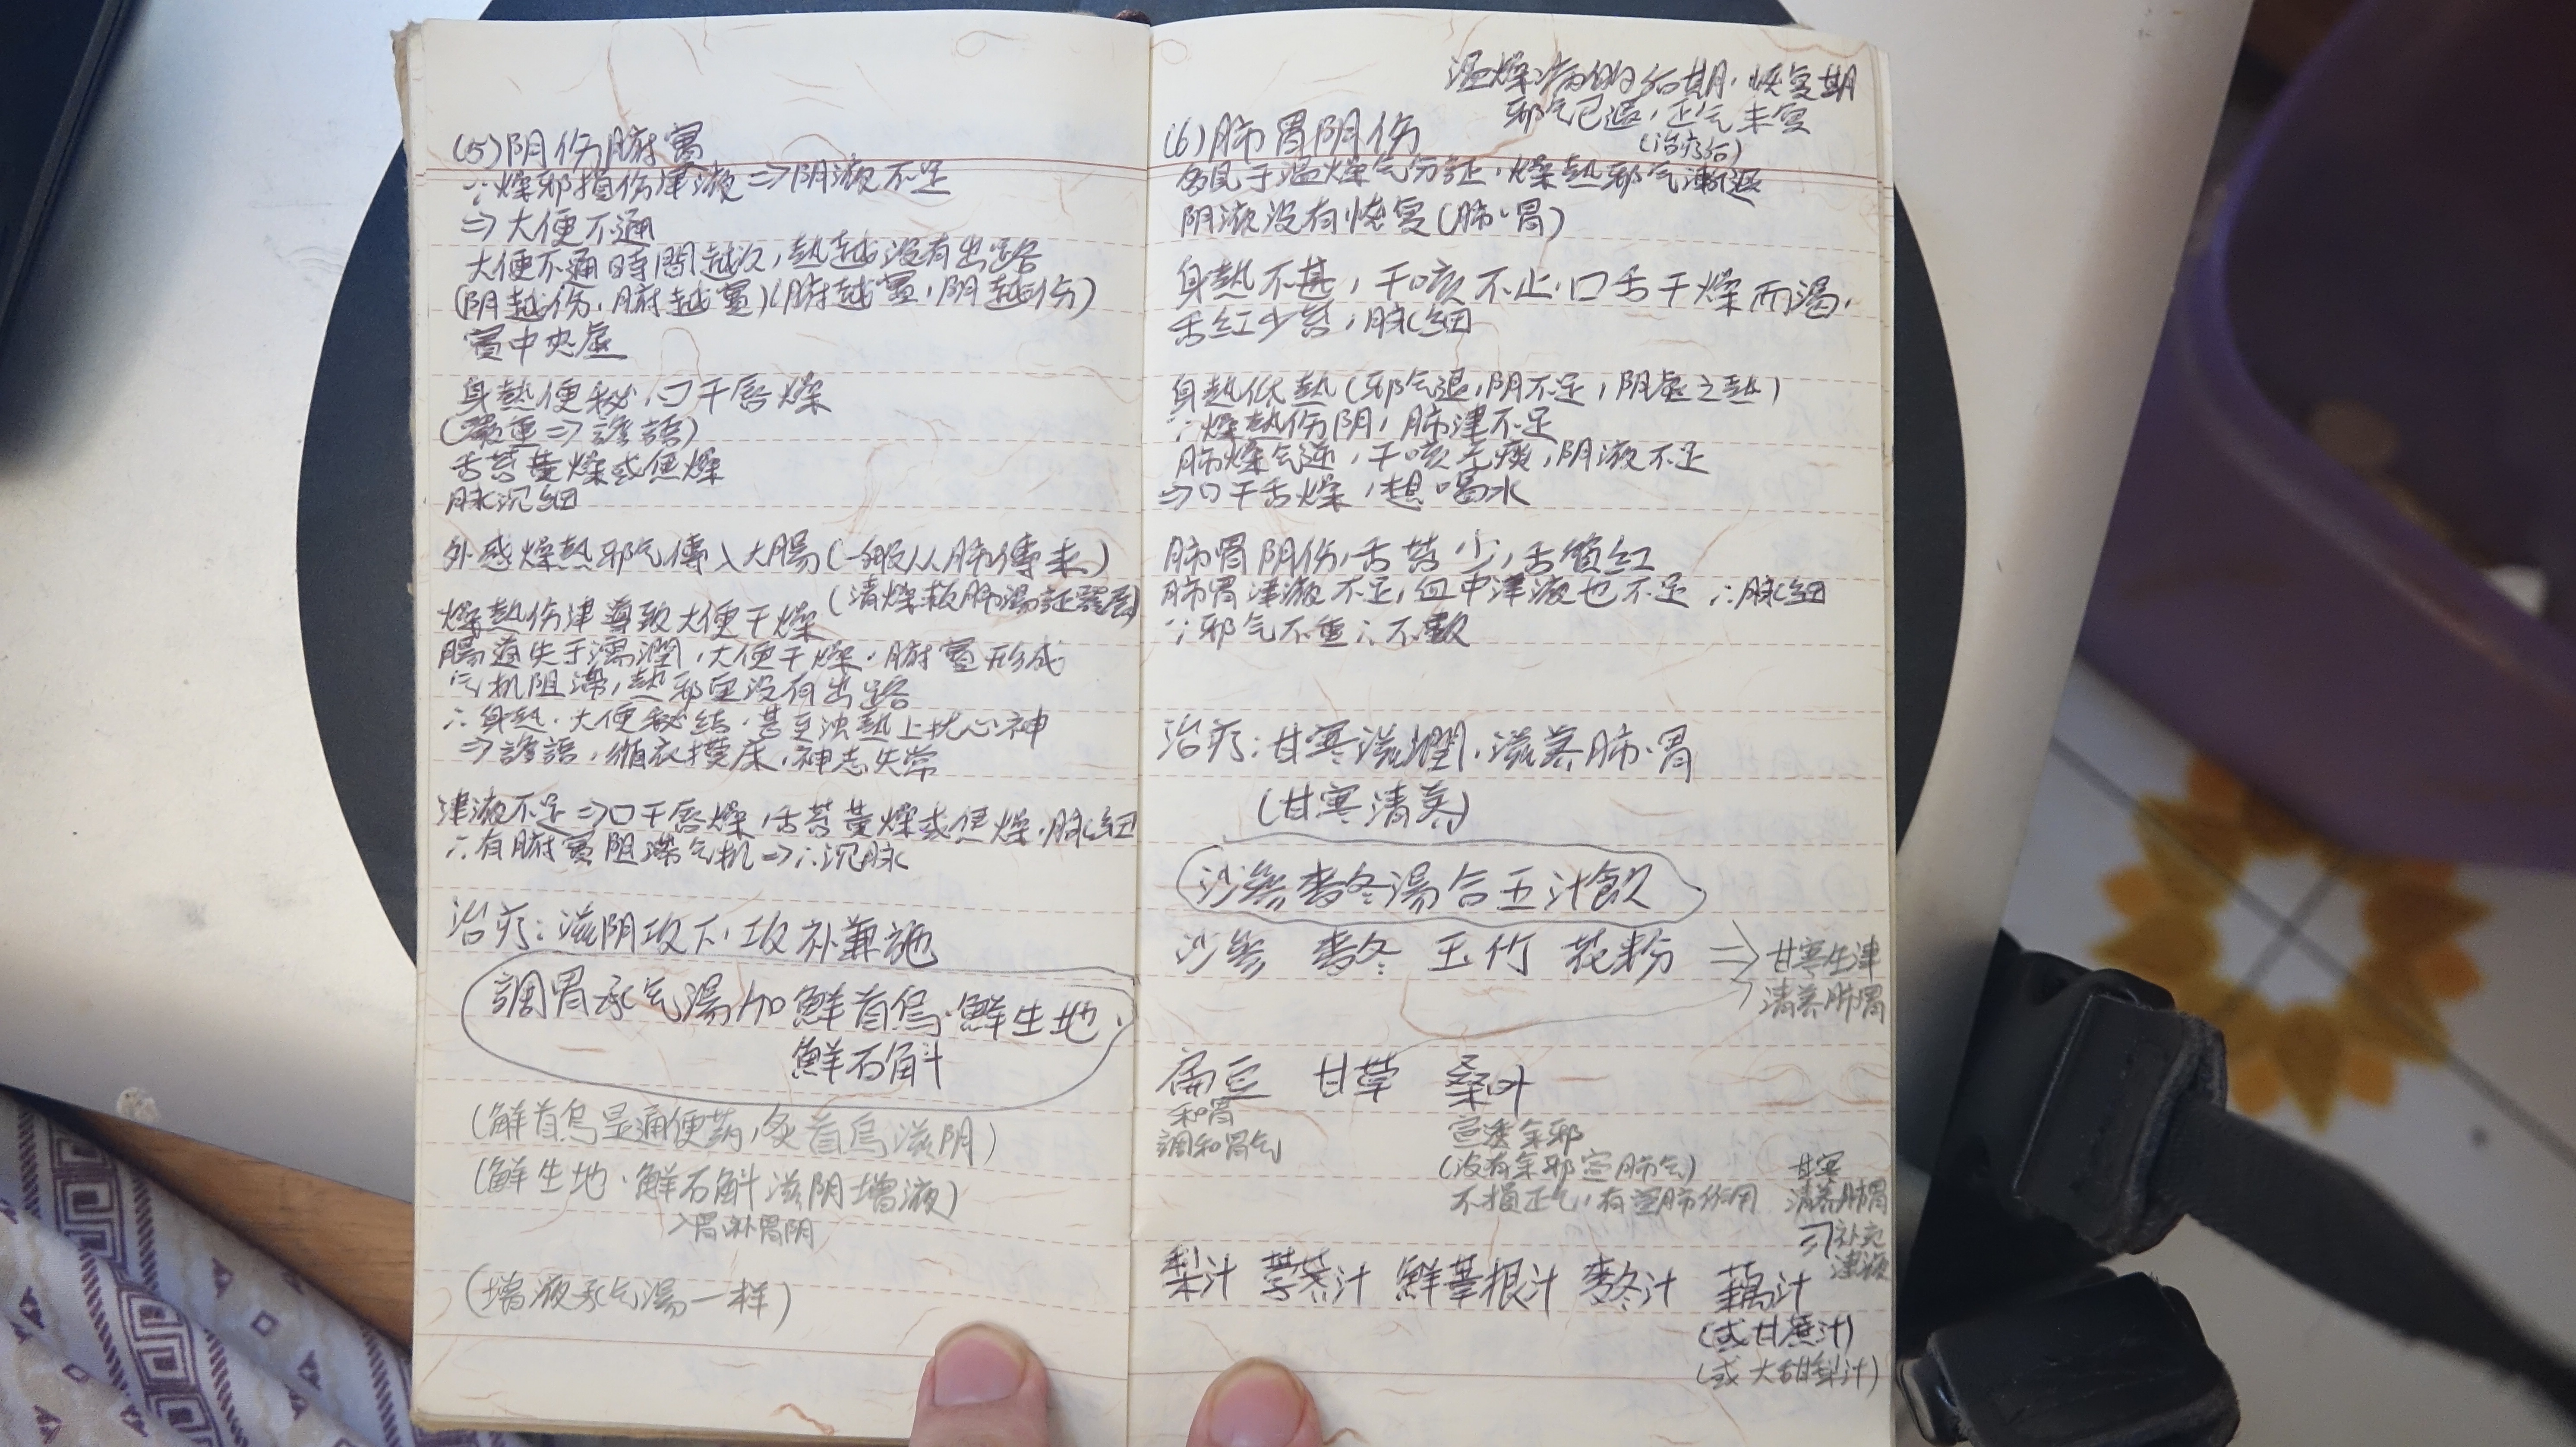 (5)阴伤腑實
∵燥邪損伤津液⇒阴液不足
⇒大便不通
大便不通時間越久,熱越沒有出路
(阴越伤,腑越實)(腑越實,阴越伤)
實中夾虛
身熱便秘,口干唇燥
(嚴重⇒譫語)
舌苔黃燥或焦燥
脉沉細
外感燥熱邪气傳入大腸(一般从肺傳來)
(清燥救肺湯証發展)
燥熱伤津導致大便干燥
腸道失于濡潤,大便干燥,腑實形成
气机阻滯,熱邪更沒有出路
∴身熱,大便秘結,甚至浊熱上扰心神
⇒譫語,循衣摸床,神志失常
津液不足⇒口干唇燥,舌苔黃燥或焦燥,脉細
∵有腑實阻滯气机⇒∴沉脉
治疗:滋阴攻下,攻补兼施
調胃承气湯加鮮首烏、鮮生地、
鮮石斛
(鮮首烏是通便药,炙首烏滋阴)
(鮮生地、鮮石斛滋阴增液)
入胃,补胃阴
(增液承气湯一样)
温燥病的后期,恢复期
邪气已退,正气未复
(治疗后)
(6)肺胃阴伤
多見于温燥气分証,燥熱邪气漸退
阴液沒有恢复(肺、胃)
身熱不甚,干咳不止,口舌干燥而渴,
舌红少苔,脉細
身熱低熱(邪气退,阴不足,阴虛之熱)
∵燥熱伤阴,肺津不足
肺燥气逆,干咳无痰,阴液不足
⇒口干舌燥,想喝水
肺胃阴伤,舌苔少,舌質红
肺胃津液不足,血中津液也不足∴脉細
∵邪气不重∴不數
治疗:甘寒滋潤,滋养肺、胃
(甘寒清养)
沙參麥冬湯合五汁飲
沙參 麥冬 玉竹 花粉 ⇒甘寒生津
清养肺胃
扁豆 甘草 桑叶
和胃
調和胃气
宣透余邪
(沒有余邪宣肺气)
不損正气,有宣肺作用
甘寒
清养肺胃
⇒补充
津液
梨汁 荸荠汁 鮮葦根汁 麥冬汁 藕汁
(或甘蔗汁)
(或大甜梨汁)